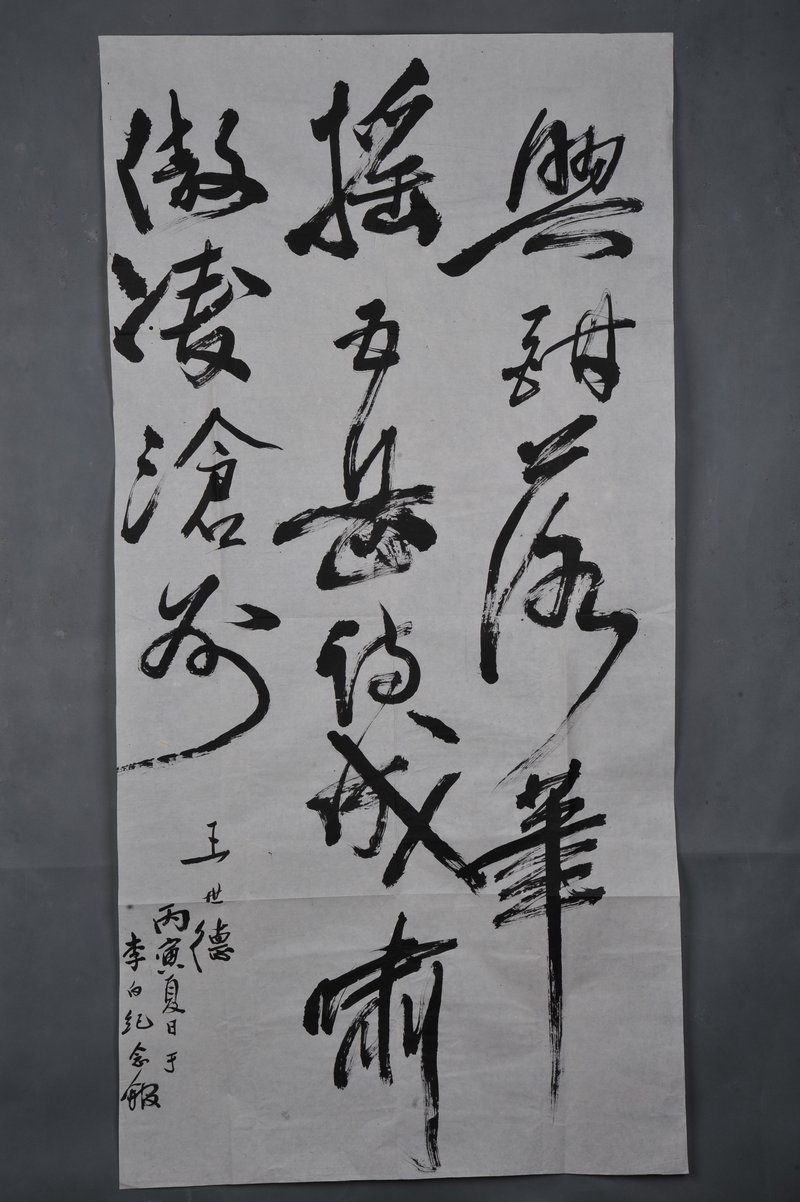 興酣落筆
摇五岳詩成嘯
傲凌滄州
王世德
丙寅夏日于
李白纪念馆